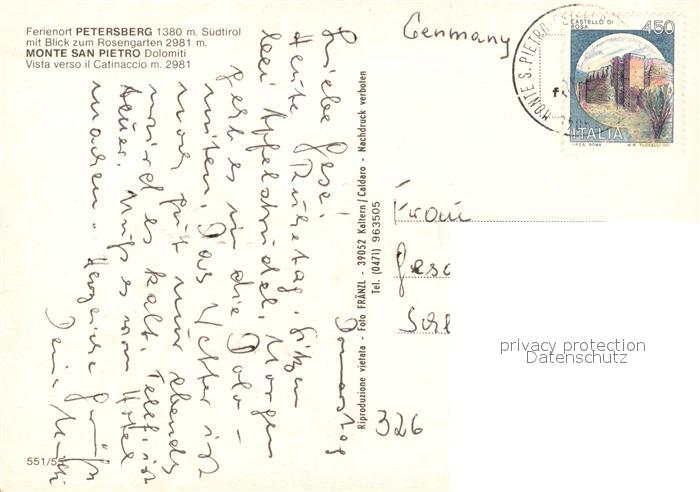 Ferienort PETERSBERG 1380 m. Südtirol
mit Blick zum Rosengarten 2981 m.
MONTE SAN PIETRO Dolomiti
Vista verso il Catinaccio m. 2981
Germany
MONTE S. PIETRO
CASTELLO DI
ROSA
450
ITALIA
I.P.Z.S. ROMA
M.M. TUCCELLI
Donnerstag
Liebe Gesa!
Heute Ruhetag. Sitzen
bei Apfelstrudel. Morgen
geht es in die Dolo-
miten. Das Wetter ist
noch gut nur abends
wird es kalt. Telef. ist
teuer. Muß es vom Hotel
machen. Herzliche Grüße
Deine Mutti
Riproduzione vietata - Foto FRÄNZL - 39052 Kaltern/Caldaro - Nachdruck verboten
Tel. (0471) 963505
Frau
Gesa
326
551/55
privacy protection
Datenschutz